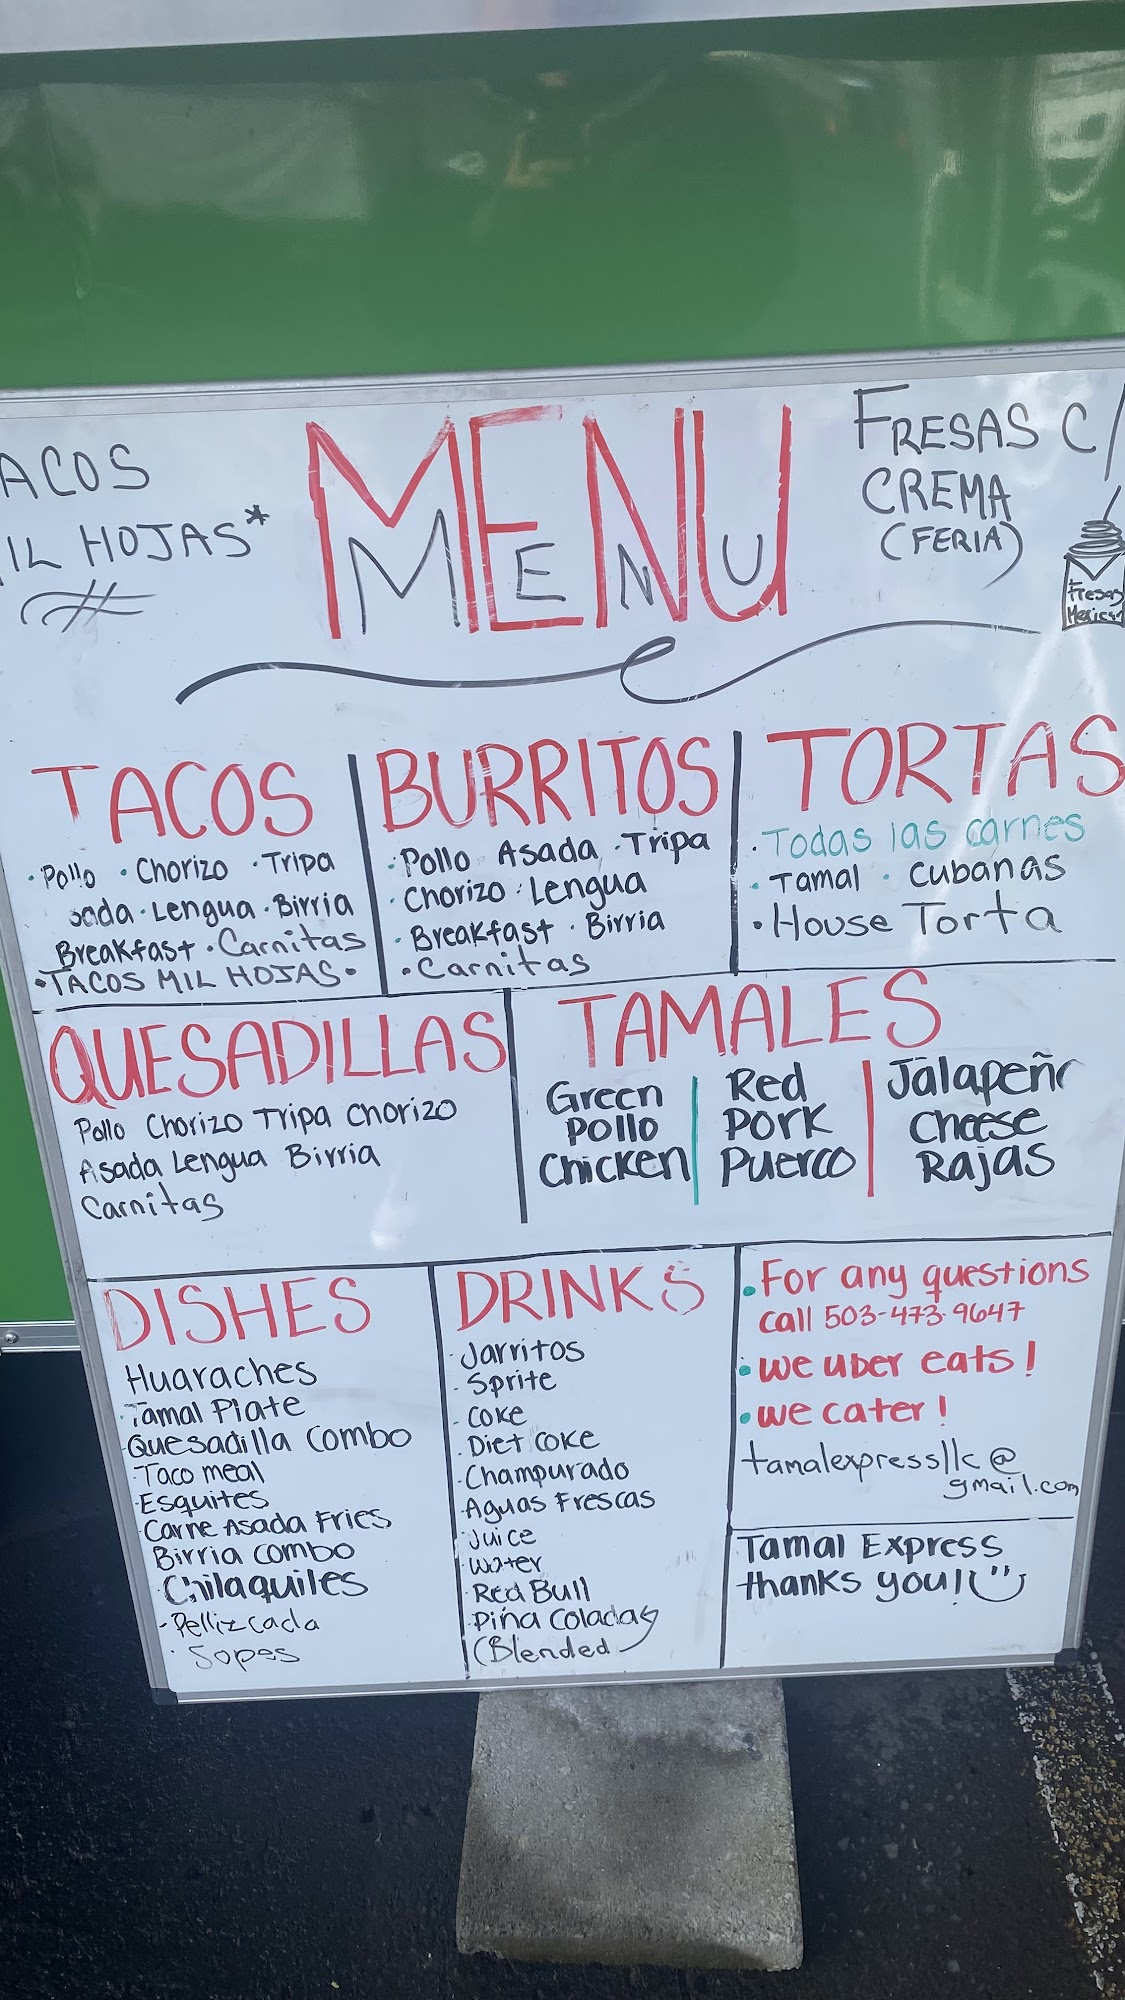 ACOS
IL HOJAS*
MENU
MENU
FRESAS C/
CREMA
(FERIA)
Fresas
TACOS
·Pollo ·Chorizo ·Tripa
sada·Lengua·Birria
Breakfast·Carnitas
·TACOS MIL HOJAS·
BURRITOS
·Pollo Asada ·Tripa
·Chorizo·Lengua
·Breakfast·Birria
·Carnitas
TORTAS
·Todas las carnes
·Tamal ·Cubanas
·House Torta
QUESADILLAS
Pollo Chorizo Tripa Chorizo
Asada Lengua Birria
Carnitas
TAMALES
Green
Pollo
Chicken
Red
Pork
Puerco
Jalapeñ
Cheese
Rajas
DISHES
Huaraches
·Tamal Plate
·Quesadilla Combo
·Taco meal
·Esquites
Carne Asada Fries
Birria combo
Chilaquiles
·Pellizcada
·Sopes
DRINKS
·Jarritos
·Sprite
·Coke
·Diet Coke
·Champurado
·Aguas Frescas
·Juice
·Water
·Red Bull
·Piña Coladas
(Blended
·For any questions
call 503-473-9647
·we uber eats!
·we cater!
tamalexpressllc@
gmail.com
Tamal Express
thanks you!